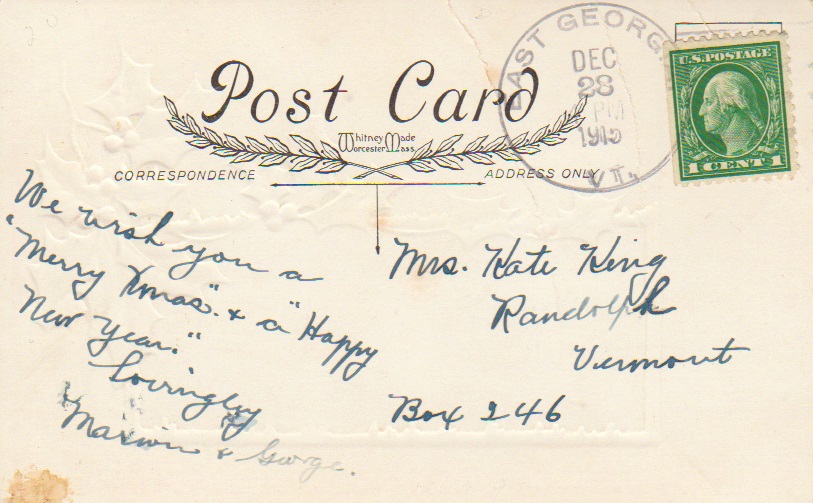 EAST GEORG
DEC
28
PM
VT.
U.S. POSTAGE
1 CENT 1
Post Card
Whitney Made
Worcester Mass.
CORRESPONDENCE
ADDRESS ONLY
We wish you a
"Merry Xmas" & a "Happy
New Year."
Lovingly
Marwin & George.
Mrs. Kate King
Randolph
Vermont
Box 246